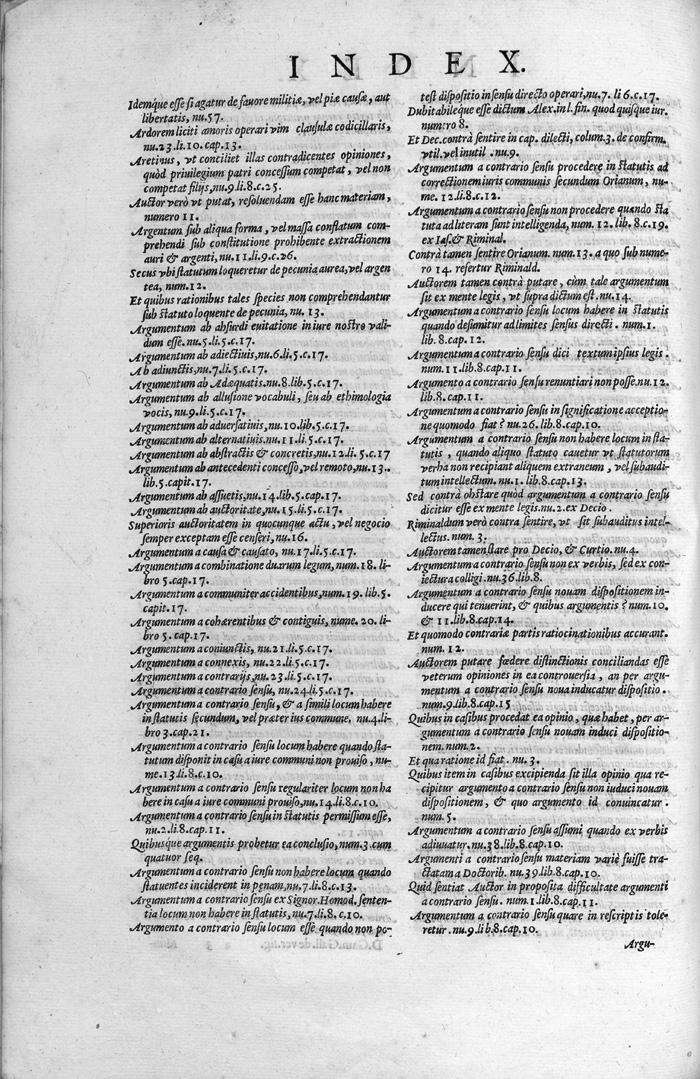 INDEX.
Idemque esse si agatur de fauore militiæ, vel piæ causæ, aut
libertatis, nu.57.
Ardorem liciti amoris operari vim clausulæ codicillaris,
nu.23.li.10.cap.13.
Aretinus, vt conciliet illas contradicentes opiniones,
quòd priuilegium patri concessum competat, vel non
competat filijs, nu.9.li.8.c.25.
Auctor verò vt putat, resoluendam esse hanc materiam,
numero 11.
Argentum sub aliqua forma, vel massa conflatum com-
prehendi sub constitutione prohibente extractionem
auri & argenti, nu.11.li.9.c.26.
Secus vbi statutum loqueretur de pecunia aurea, vel argen
tea, num.12.
Et quibus rationibus tales species non comprehendantur
sub statuto loquente de pecunia, nu. 13.
Argumentum ab absurdi euitatione in iure nostro vali-
dum esse. nu.5.li.5.c.17.
Argumentum ab adiectiuis, nu.6.li.5.c.17.
Ab adiunctis, nu.7.li.5.c.17.
Argumentum ab Adæquatis. nu.8.lib.5.c.17.
Argumentum ab allusione vocabuli, seu ab ethimologia
vocis, nu.9.li.5.c.17.
Argumentum ab aduersatiuis, nu.10.lib.5.c.17.
Argumentum ab alternatiuis. nu.11.li.5.c.17.
Argumentum ab abstractis & concretis, nu.12.li.5.c.17
Argumentum ab antecedenti concesso, vel remoto, nu.13.
lib.5.capit.17.
Argumentum ab assuetis, nu.14.lib.5.cap.17.
Argumentum ab auctoritate, nu.15.li.5.c.17.
Superioris auctoritatem in quocunque actu, vel negocio
semper exceptam esse censeri, nu.16.
Argumentum a causa & causato, nu.17.li.5.c.17.
Argumentum a combinatione duarum legum, num.18. li-
bro 5.cap.17.
Argumentum a communiter accidentibus, num.19. lib.5.
capit.17.
Argumentum a cohærentibus & contiguis, nume. 20. li-
bro 5.cap.17.
Argumentum a coniunctis, nu.21.li.5.c.17.
Argumentum a connexis, nu.22.li.5.c.17.
Argumentum a contrarijs, nu.23.li.5.c.17.
Argumentum a contrario sensu, nu.24.li.5.c.17.
Argumentum a contrario sensu, & a simili locum habere
in statutis secundum, vel præter ius commune. nu.4.li-
bro 3.cap.21.
Argumentum a contrario sensu locum habere quando sta-
tutum disponit in casu a iure communi non prouiso, nu-
me.13.li.8.c.10.
Argumentum a contrario sensu regulariter locum non ha
bere in casu a iure communi prouiso, nu.14.li.8.c.10.
Argumentum a contrario sensu in statutis permissum esse,
nu.2.li.8.cap.11.
Quibusque argumentis probetur ea conclusio, num.3.cum
quatuor seq.
Argumentum a contrario sensu non habere locum quando
statuentes inciderent in penam, nu.7.li.8.c.13.
Argumentum a contrario sensu ex Signor. Homod. senten-
tia locum non habere in statutis, nu.7.li.8.c.10.
Argumento a contrario sensu locum esse quando non po-
test dispositio in sensu directo operari, nu.7. li 6.c.17.
Dubitabileque esse dictum Alex. in l. fin. quod quisque iur.
numero 8.
Et Dec. contrà sentire in cap. dilecti, colum.3. de confirm.
vtil. vel inutil. nu.9.
Argumentum a contrario sensu procedere in statutis ad
correctionem iuris communis secundum Orianum, nu-
me. 12.li.8.c.12.
Argumentum a contrario sensu non procedere quando sta
tuta ad literam sunt intelligenda, num. 12. lib. 8.c.19.
ex Ias. & Riminal.
Contrà tamen sentire Orianum. num.13. a quo sub nume-
ro 14. refertur Riminald.
Auctorem tamen contrà putare, cùm tale argumentum
sit ex mente legis, vt supra dictum est. nu.14.
Argumentum a contrario sensu locum habere in statutis
quando desumitur ad limites sensus directi. num.1.
lib.8.cap.12.
Argumentum a contrario sensu dici textum ipsius legis.
num.11.lib.8.cap.11.
Argumento a contrario sensu renuntiari non posse. nu.12.
lib.8.cap.11.
Argumentum a contrario sensu in significatione acceptio-
ne quomodo fiat? nu.26.lib.8.cap.10.
Argumentum a contrario sensu non habere locum in sta-
tutis, quando aliquo statuto cauetur vt statutorum
verba non recipiant aliquem extraneum, vel subaudi-
tum intellectum. nu.1. lib.8.cap.13.
Sed contrà obstare quòd argumentum a contrario sensu
dicitur esse ex mente legis. nu.2. ex Decio.
Riminaldum verò contrà sentire, vt sit subauditus intel-
lectus. num.3.
Auctorem tamen stare pro Decio, & Curtio. nu.4.
Argumentum a contrario sensu non ex verbis, sed ex con-
iectura colligi. nu.36.lib.8.
Argumentum a contrario sensu nouam dispositionem in-
ducere qui tenuerint, & quibus argumentis? num.10.
& 11.lib.8.cap.14.
Et quomodo contrariæ partis ratiocinationibus accurant.
num.12.
Auctorem putare fœdere distinctionis conciliandas esse
veterum opiniones in ea controuersia, an per argu-
mentum a contrario sensu noua inducatur dispositio.
num.9.lib.8.cap.15
Quibus in casibus procedat ea opinio, quæ habet, per ar-
gumentum a contrario sensu nouam induci dispositio-
nem. num.2.
Et qua ratione id fiat. nu.3.
Quibus item in casibus excipienda sit illa opinio qua re-
cipitur argumento a contrario sensu non induci nouam
dispositionem, & quo argumento id conuincatur.
num. 5.
Argumentum a contrario sensu assumi quando ex verbis
adiuuatur. nu.38.lib.8.cap.10.
Argumenti a contrario sensu materiam variè fuisse tra-
ctatam a Doctorib. nu.39.lib.8.cap.10.
Quid sentiat Auctor in proposita difficultate argumenti
a contrario sensu. num.1.lib.8.cap.11.
Argumentum a contrario sensu quare in rescriptis tole-
retur. nu.9.lib.8.cap.10.
Argu-